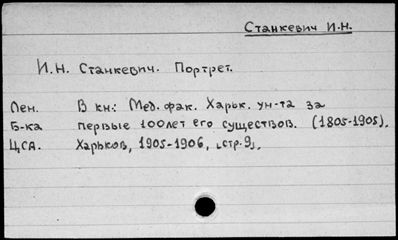 Станкевич И.Н.
И.Н. Станкевич. Портрет.
Лен. В кн.: Мед. фак. Харьк. ун-та за
Б-ка первые 100 лет его существов. (1805-1905).
ЦСА. Харьков, 1905-1906, [стр. 9].